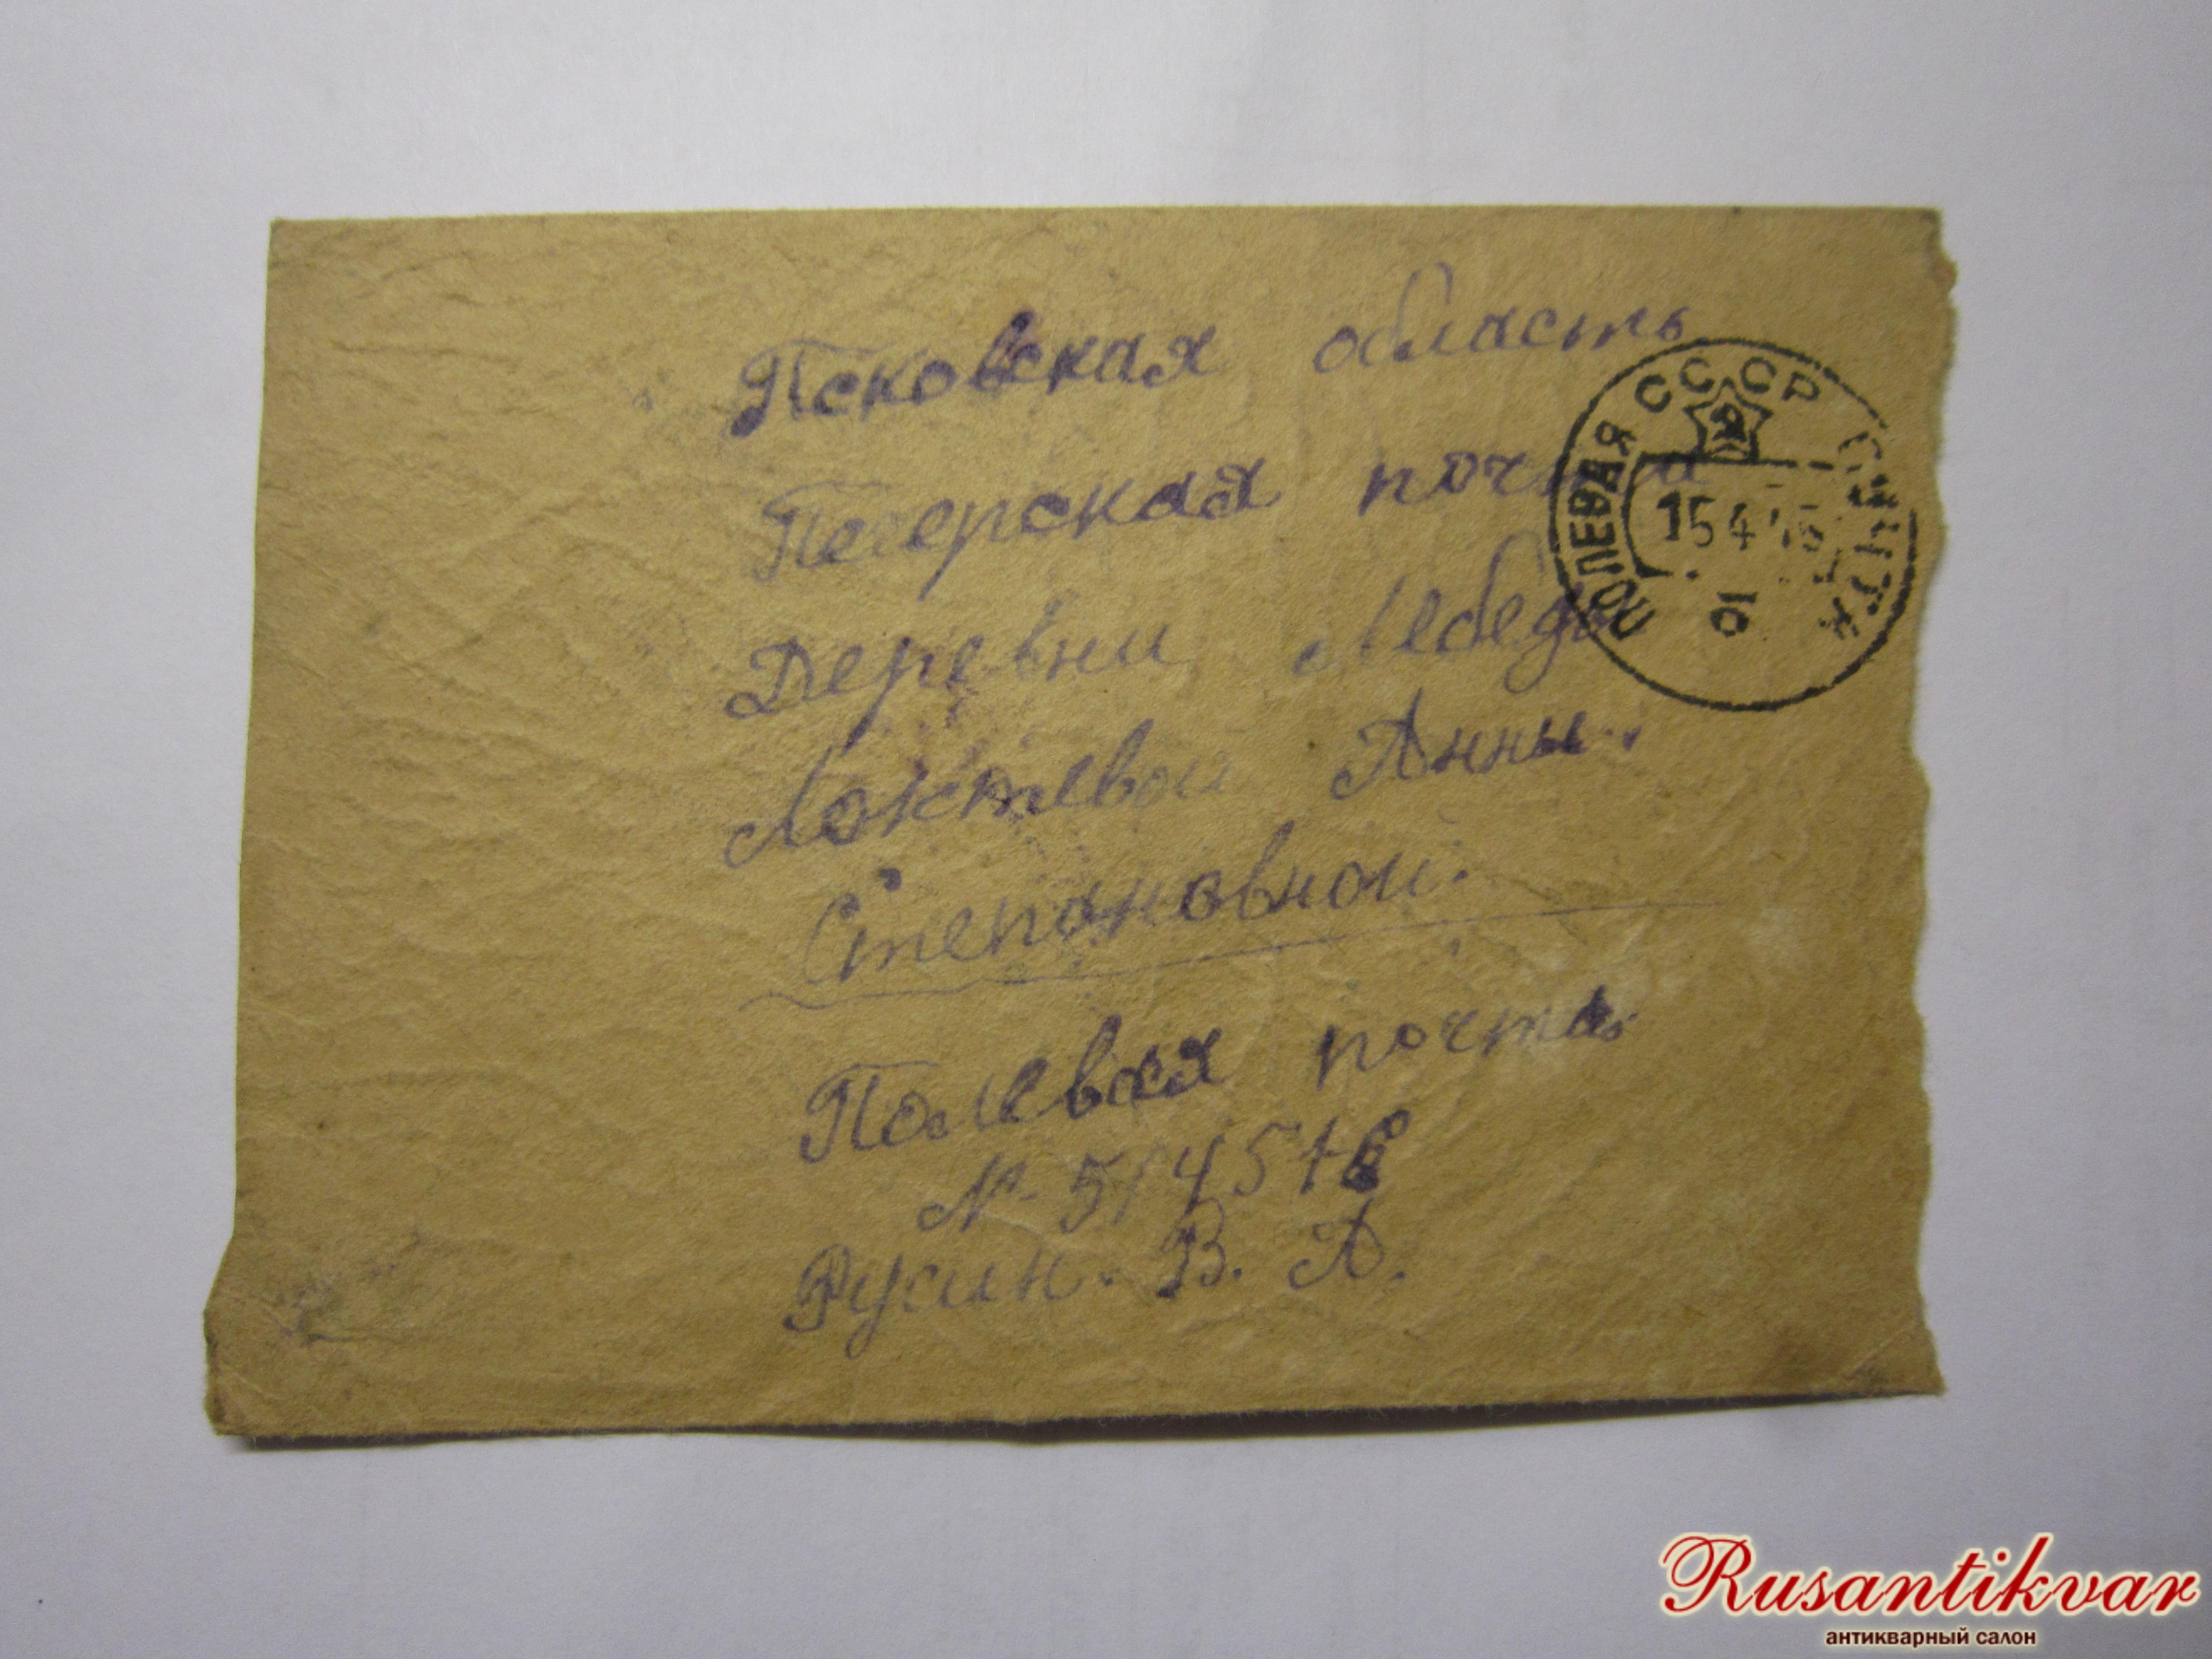 Псковская область
Печерская почта
Деревни Лебеды
Локтевой Анны.
Степоновной.
Полевая почта
№ 51457б
Русин. В. А.
ПОЛЕВАЯ ПОЧТА
СССР
15 4 45
01
Rusantikvar
антикварный салон